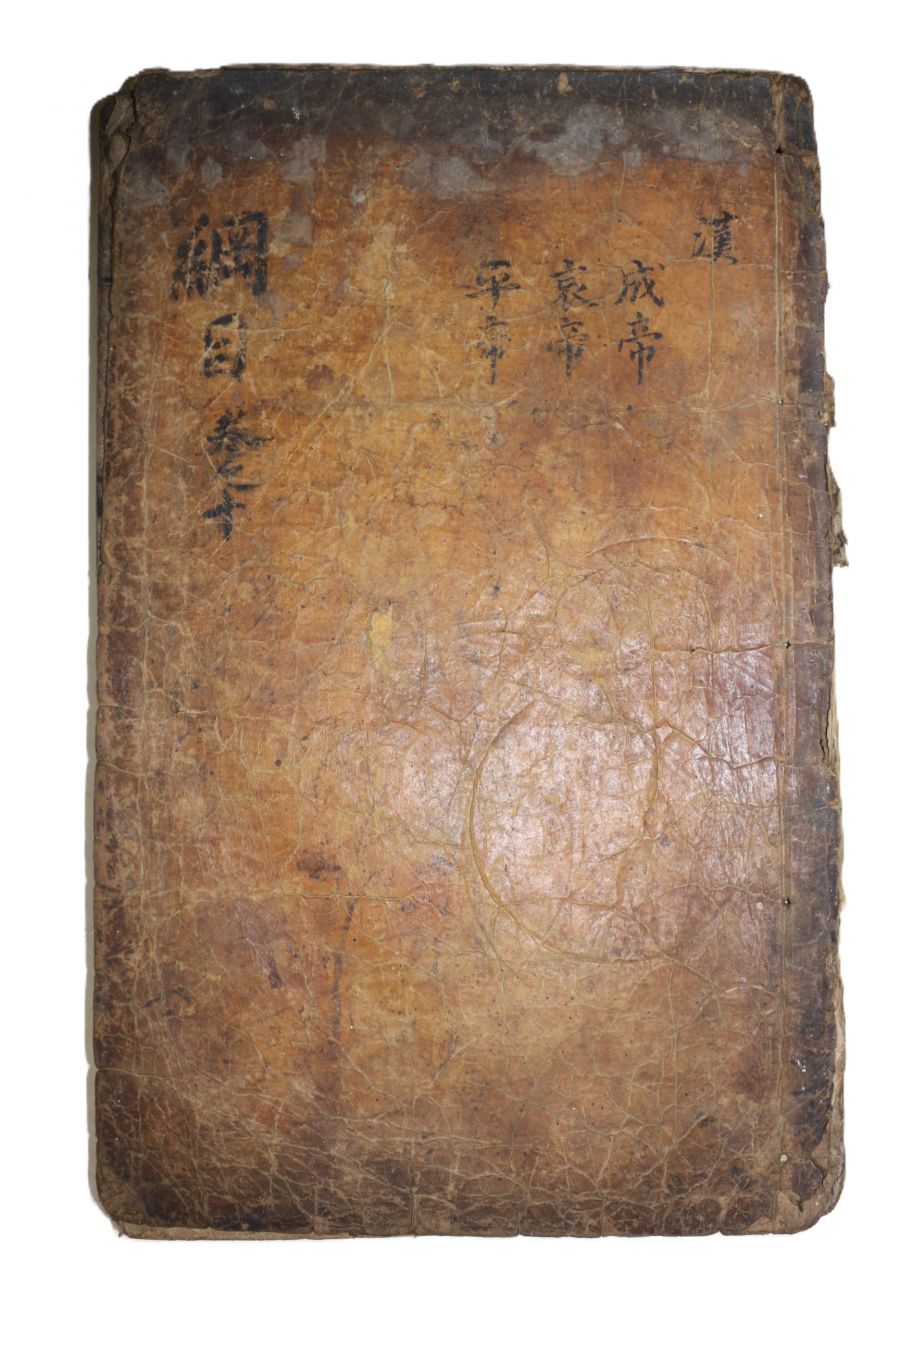 漢
成帝
哀帝
平帝
綱目 卷之十